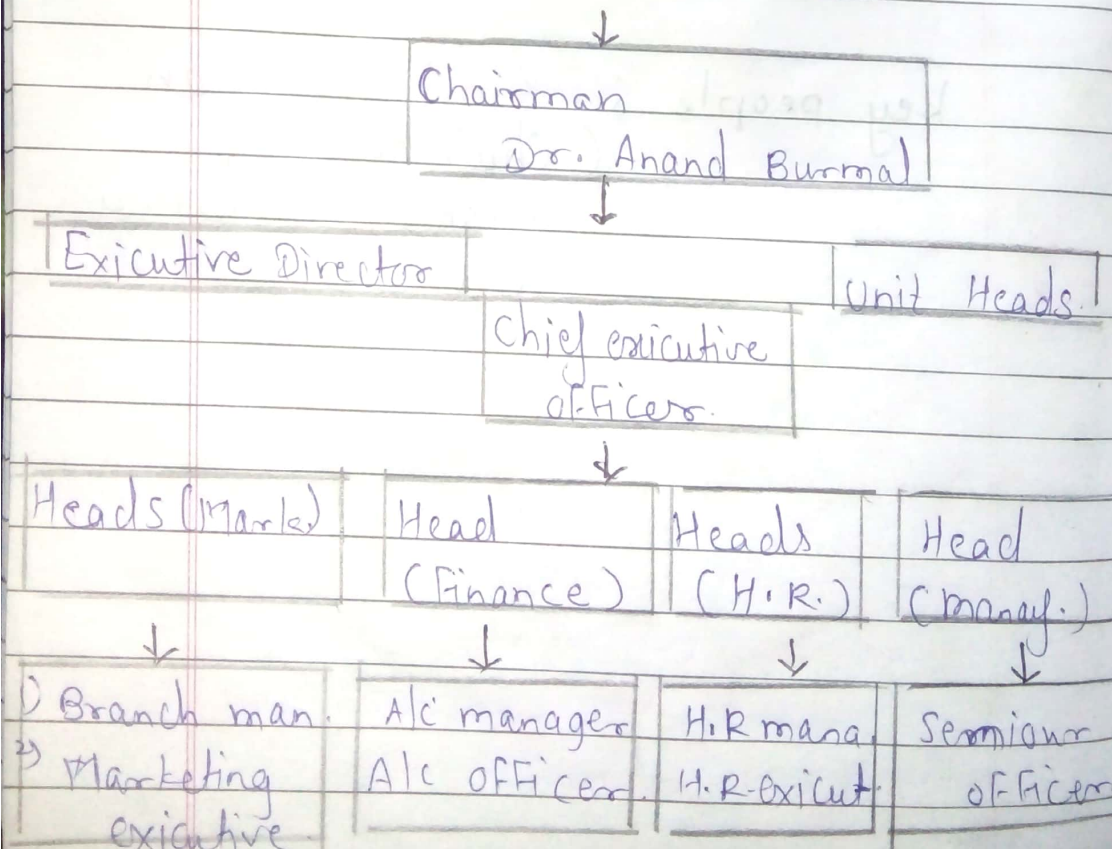 Chairman
Dr. Anand Burmal
Exicutive Director
Unit Heads.
Chief exicutive
officer.
Heads (Mark.)
Head
(Finance)
Heads
(H.R.)
Head
(manaf.)
1) Branch man.
2) Marketing
exicutive.
A/c manager
A/c officer.
H.R mana.
H.R-exicut.
officer